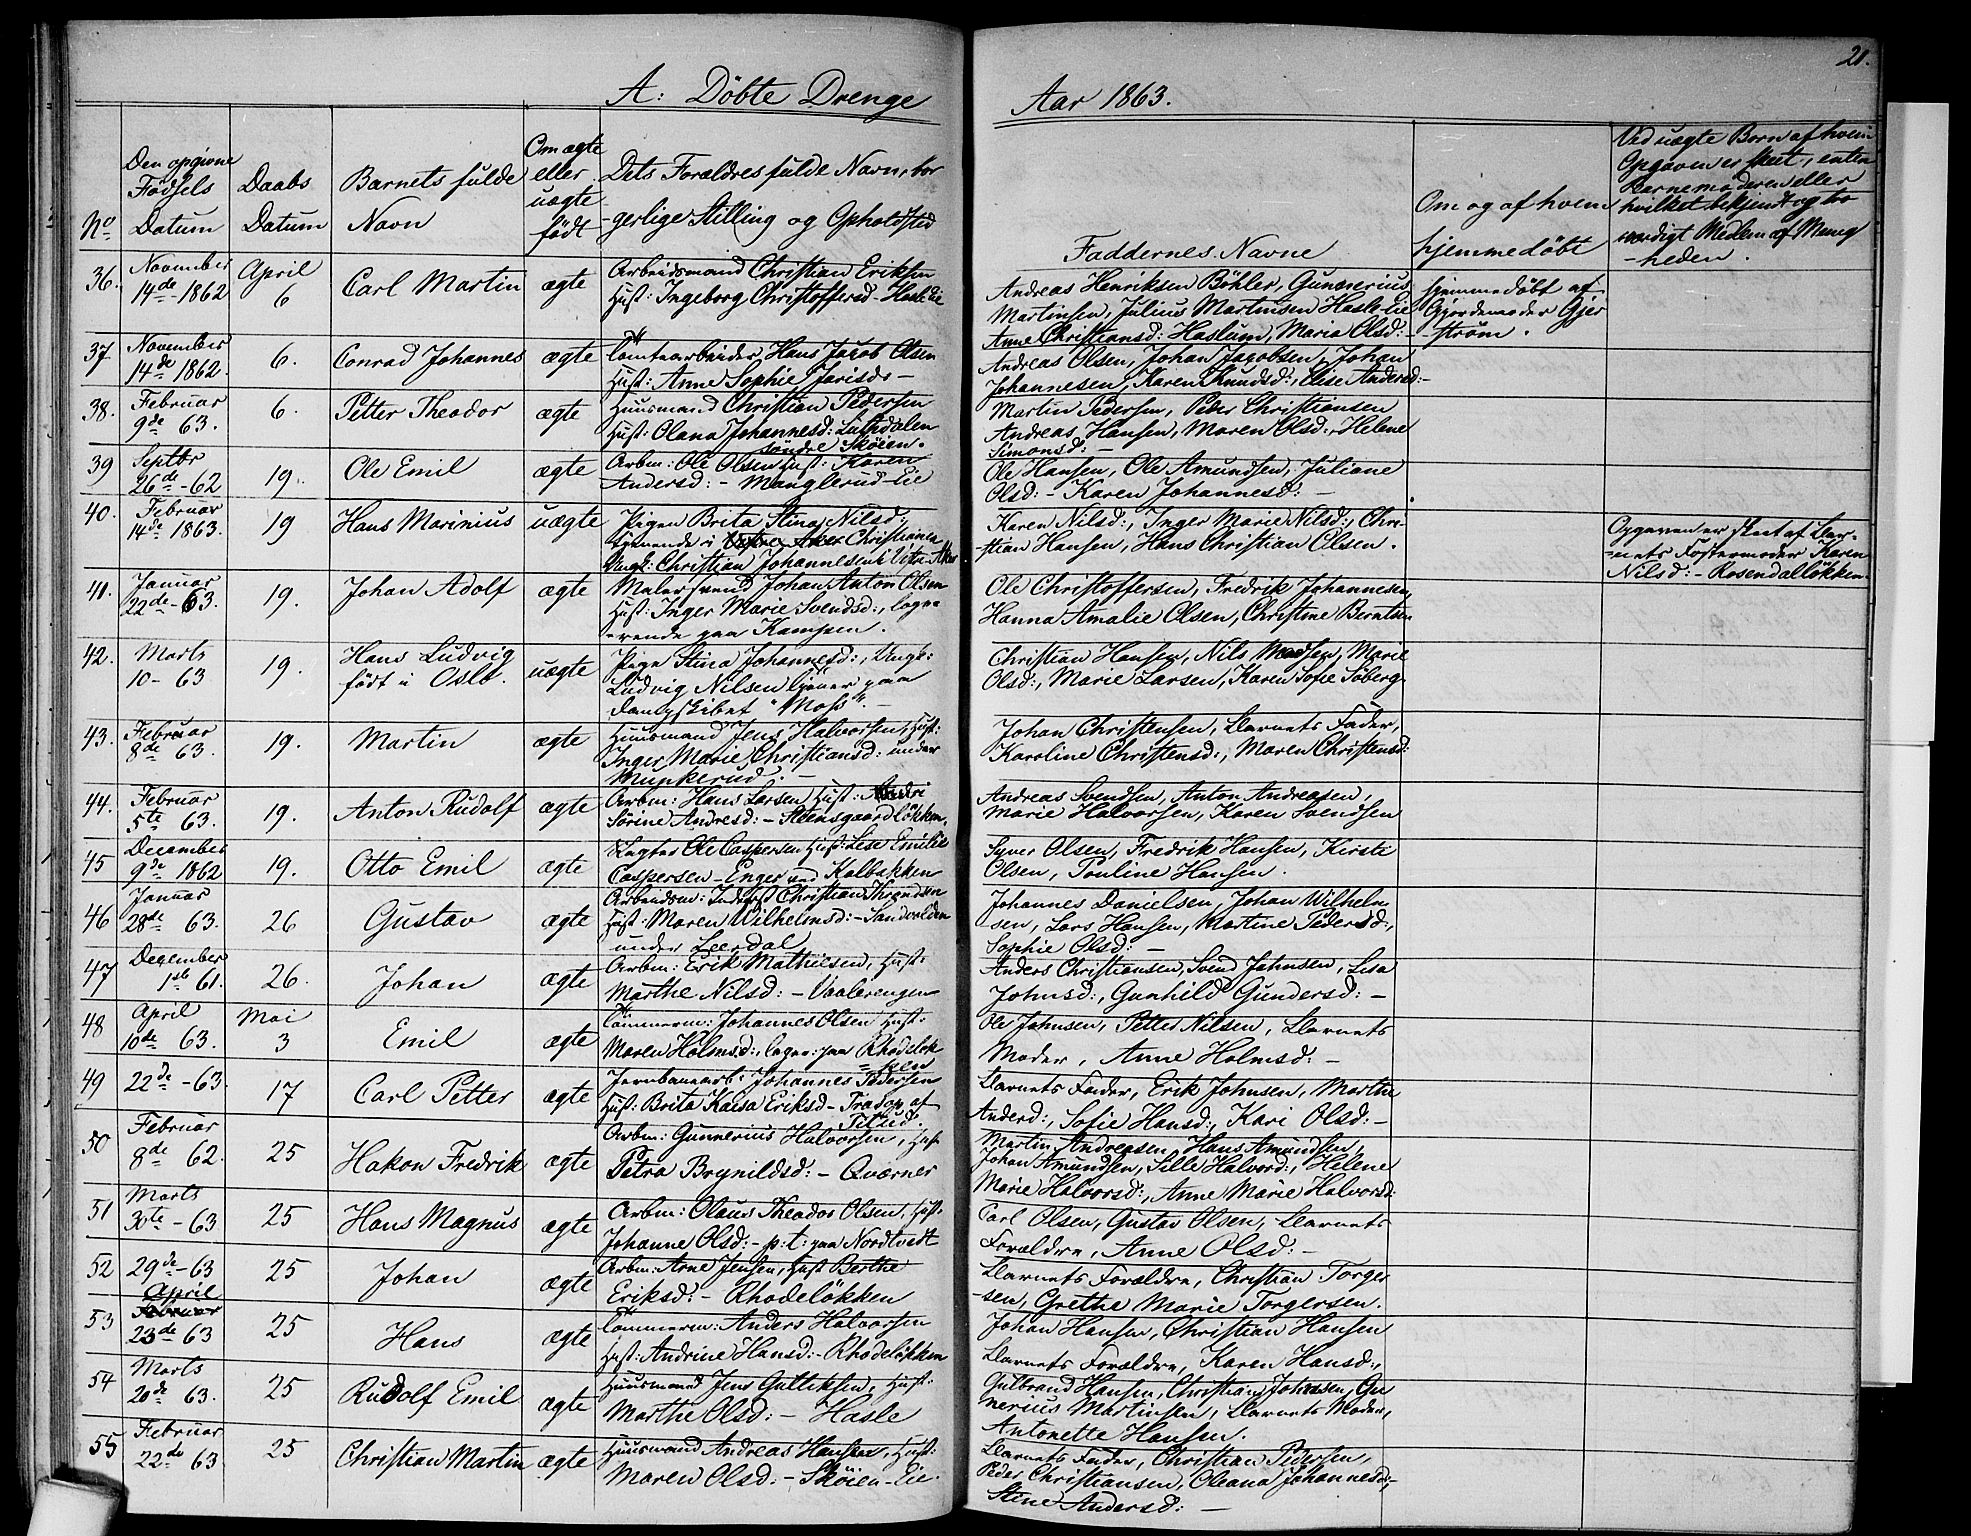 21.
A: Döbte Drenge
Aar 1863.
No
Den opgivne
Födsels
Datum
Daabs
Datum
Barnets fulde
Navn
Om ægte
eller
uægte
födt
Dets Forældres fulde Navn, bor
gerlige Stilling og Opholdsted
Faddernes Navne
Om og af hvem
hjemmedöbt
Ved uægte Børn af hvem
Opgaven er skeet, enten
Barnemoderen eller
hvilket bekjendt og tro
værdigt Medlem af Menig
-heden.
36.
November
14de-1862
April
6
Carl Martin
ægte
Arbeidsmand Christian Eriksen
Hust: Ingeborg Christoffersd-Hasle Eie
Andreas Henriksen Böhler, Gunnerius
Martinsen, Julius Martinsen Hasle-Eie
Anne Christiansd: Haslum, Maria Olsd:
hjemmedöbt af
Gjordemoder Gjer
ström.
37.
November
14de 1862.
6.
Conrad Johannes
ægte
Tomtearbeider Hans Jacob Olsen
Hust: Anne Sophie Jarisdr-
Andreas Olsen, Johan Jacobsen, Johan
Johannesen, Karen Knudsd:, Elise Andersd:-
38.
Februar
9de 63.
6.
Petter Theodor
ægte
Huusmand Christian Pedersen
Hust: Olana Johannesd:
söndre Sköien.
Martin Pedersen, Peder Christiansen
Andreas Hansen, Maren Olsd:, Helene
Simonsd: -
39
Septbr
26de-62
19.
Ole Emil
ægte
Arbm: Ole Olsen Hust: Karen
Andersd: - Manglerud-Eie
Ole Hansen, Ole Amundsen, Juliane
Olsd: - Karen Johannesd: -
40.
Februar
14de 1863.
19
Hans Marinius
uægte
Pigen Brita Stina Nilsd,
tjenende i Vestre Aker Christiania
Ungk: Christian Johannesen i Vestr-Aker
Karen Nilsd:, Inger Marie Nilsd:, Chri-
-stian Hansen, Hans Christian Olsen.
Opgaven er skeet af Bar-
-nets Fostermoder Karen
Nilsd: - Rosendalløkken
41.
Januar
22de-63.
19.
Johan Adolf
ægte
Malersvend Johan Anton Olsen
Hust: Inger Marie Svendsd:, loge
-rende paa Kampen.
Ole Christoffersen, Fredrik Johannesen,
Hanna Amalie Olsen, Christine Berntsen
42.
Marts
10- 63.
19.
Hans Ludvig
födt i Oslo.
uægte
Pige Stina Johannesd:, Ungk:
Ludvig Nilsen tjener paa
Dampskibet "Moss". -
Christian Hansen, Nils Madsen, Marie
Olsd:, Marie Larsen, Karen Sofie Söberg
43.
Februar
8de 63.
19.
Martin
ægte
Huusmand Jens Halvorsen, Hust:
Inger Marie Christiansd: under
Munkerud. -
Johan Christensen, Barnets Fader,
Karoline Christensd:, Maren Christensd:
44.
Februar
5te 63.
19.
Anton Rudolf
ægte
Arbm: Hans Larsen Hust:
Sörine Andresd: - Steensgaardløkken.
Andreas Svendsen, Anton Andreasen,
Marie Halvorsen, Karen Svendsen
45
December
9de 1862
19.
Otto Emil
ægte
Slagter Ole Caspersen Hust: Lise Emilie
Caspersen - Enger ved Kalbakken
Syver Olsen, Fredrik Hansen, Kirsti
Olsen, Pouline Hansen.
46
Januar
28de 63.
26
Gustav
ægte
Arbeidsm: Inderst Christian Throndsen
Hust: Maren Wilhelmsd: - Sandvolden
under Leerdal
Johannes Danielsen, Johan Wilhelm
sen, Lars Hansen, Martine Pedersd:,
Sophie Olsd: -
47
December
1ste 61.
26.
Johan
ægte
Arbm: Erik Mathiesen, Hust:
Marthe Nilsd: - Vaalerengen
Anders Christiansen, Svend Johnsen, Lisa
Johnsd:, Gunhild Gundersd: -
48
April
10de 63.
Mai
3
Emil
ægte
Tömmerm: Johannes Olsen Hust:
Maren Holmsd:, loger: paa Rhodeløk
-ken
Ole Johnsen, Petter Nilsen, Barnets
Moder, Anne Holmsd: -
49
22de -63.
17
Carl Petter
ægte
Jernbanearb: Johannes Pedersen
Hust: Brita Kaisa Eriksd -
Barnets Fader, Erik Johnsen, Marthe
Andersd:, Sofie Hansd:, Kari Olsd: -
50
Februar
8de 62.
25
Hakon Fredrik
ægte
Arbm: Gunnerius Halvorsen, Hust
Petra Brynildsd: - Qværner
Martin Andreasen Hans Amundsen,
Johan Amundsen, Lille Halvord:, Helene
Marie Halvorsd:, Anne Marie Halvorsd:
51
Marts
30te - 63
25
Hans Magnus
ægte
Arbm: Olaus Theodor Olsen, Hust:
Johanne Olsd: - p:t: paa Nordtvedt
Carl Olsen, Gustav Olsen, Barnets
Forældre, Anne Olsd: -
52
29de-63
25
Johan
ægte
Arbm: Arne Jensen, Hust Berthe
Eriksd: - Rhodeløkken
Barnets Forældre, Christian Torger
-sen, Grethe Marie Torgersen.
53
April
Februar
23de 63
25
Hans
ægte
Tömmerm: Anders Halvorsen
Hust: Andrine Hansd: - Rhodeløkken
Johan Hansen, Christian Hansen
Barnets Forældre, Karen Hansd:,
54
Marts
20de 63.
25
Rudolf Emil
ægte
Huusmand Jens Gulliksen, Hust:
Marthe Olsd: - Hasle
Gulbrand Hansen, Christian Johnsen, Gu
nerius Martinsen, Barnets Moder,
Antonette Hansen.
55
Februar
22de 63
25
Christian Martin
ægte
Huusmand Andreas Hansen, Hust:
Maren Olsd: - Sköien-Eie.
Barnets Fader, Christian Pedersen,
Peder Christiansen, Oleana Johannesd:,
Stine Andersd: -